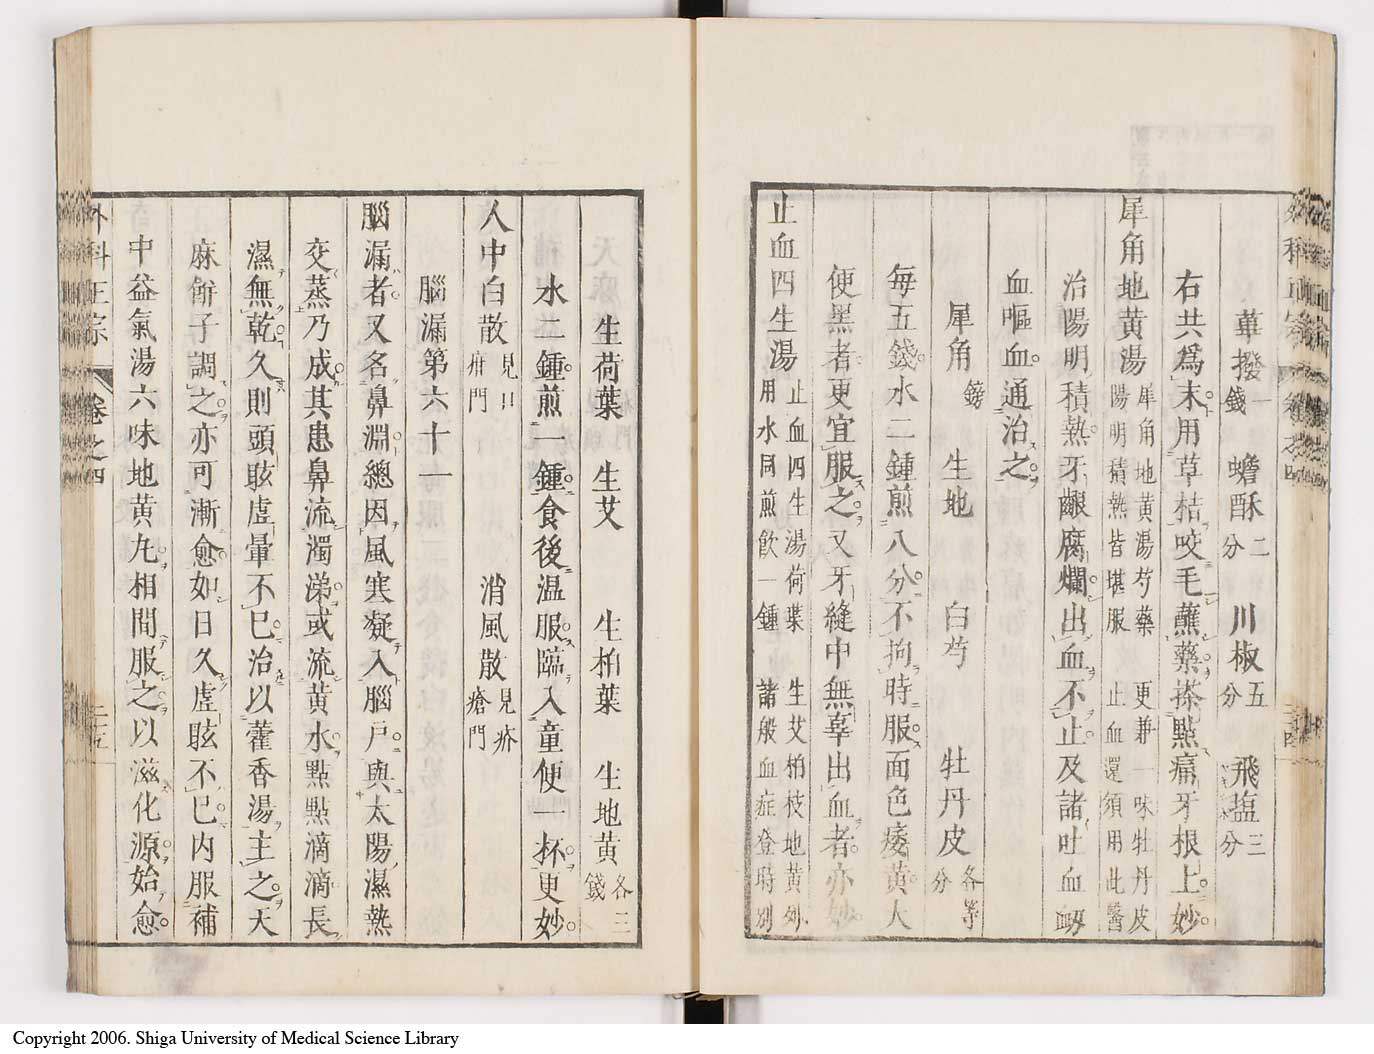 蓽撥一錢 蟾酥二分 川椒五分 飛塩三分
右共爲末用草桔咬毛蘸藥搽點痛牙根上妙
犀角地黃湯 犀角地黃湯芍藥 更兼一味牡丹皮
陽明積熱皆堪服 止血還須用此醫
治陽明積熱牙齦腐爛出血不止及諸吐血衂
血嘔血通治之
犀角鎊 生地 白芍 牡丹皮各等分
每五錢水二鍾煎八分不拘時服面色痿黃大
便黑者更宜服之又牙縫中無辜出血者亦妙
止血四生湯 止血四生湯荷葉 生艾柏枝地黃列
用水同煎飲一鍾 諸般血症登時別
生荷葉 生艾 生柏葉 生地黃各三錢
水二鍾煎一鍾食後温服臨入童便一杯更妙
人中白散見口疳門 消風散見疥瘡門
腦漏第六十一
腦漏者又名鼻淵總因風寒凝入腦戶與太陽濕熱
交蒸乃成其患鼻流濁涕或流黃水點點滴滴長
濕無乾久則頭眩虛暈不已治以藿香湯主之天
麻餅子調之亦可漸愈如日久虛眩不已内服補
中益氣湯六味地黃丸相間服之以滋化源始愈
外科正宗 卷之四 二十五
Copyright 2006. Shiga University of Medical Science Library